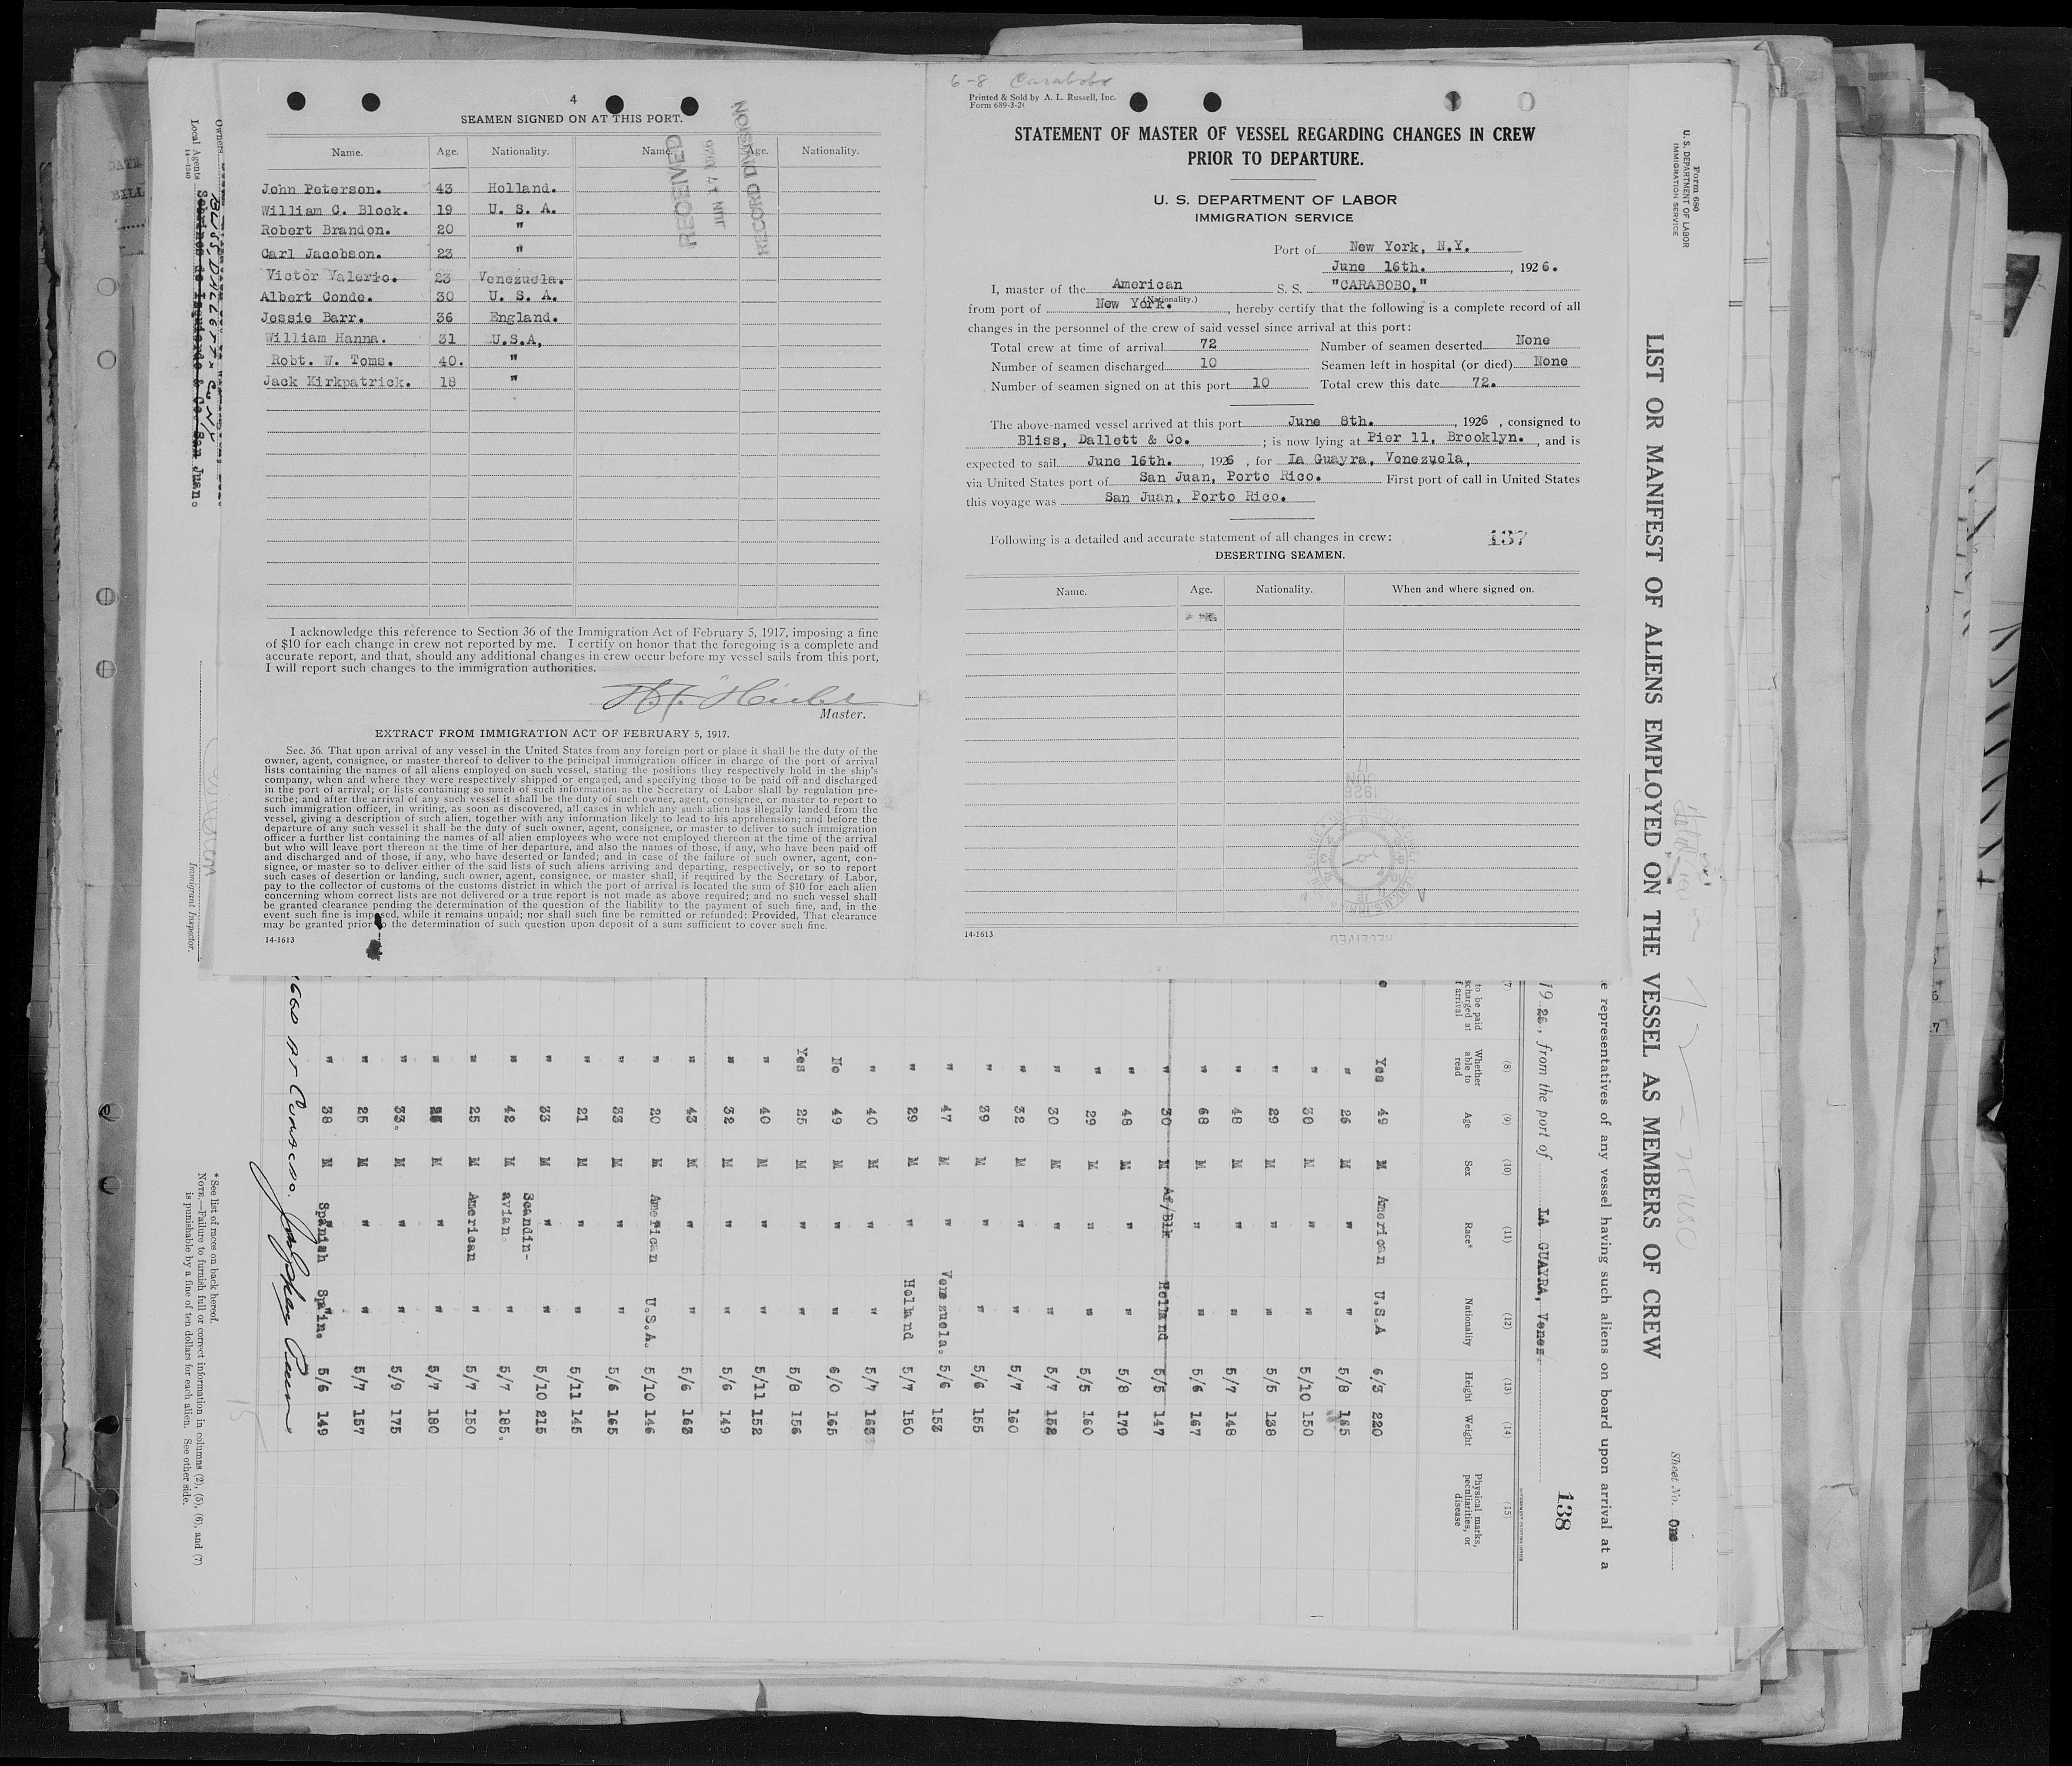 4
SEAMEN SIGNED ON AT THIS PORT.
Name. Age. Nationality. Name. Age. Nationality.
John Peterson. 43 Holland.
William C. Block. 19 U. S. A.
Robert Brandon. 20 "
Carl Jacobson. 23 "
Victor Valerio. 23 Venezuela.
Albert Conde. 30 U. S. A.
Jessie Barr. 36 England.
William Hanna. 31 U.S.A,
Robt. W. Toms. 40. "
Jack Kirkpatrick. 18 "
RECEIVED
JUN 17 1926
RECORD DIVISION
I acknowledge this reference to Section 36 of the Immigration Act of February 5, 1917, imposing a fine
of $10 for each change in crew not reported by me. I certify on honor that the foregoing is a complete and
accurate report, and that, should any additional changes in crew occur before my vessel sails from this port,
I will report such changes to the immigration authorities.
Master.
EXTRACT FROM IMMIGRATION ACT OF FEBRUARY 5, 1917.
Sec. 36. That upon arrival of any vessel in the United States from any foreign port or place it shall be the duty of the
owner, agent, consignee, or master thereof to deliver to the principal immigration officer in charge of the port of arrival
lists containing the names of all aliens employed on such vessel, stating the positions they respectively hold in the ship's
company, when and where they were respectively shipped or engaged, and specifying those to be paid off and discharged
in the port of arrival; or lists containing so much of such information as the Secretary of Labor shall by regulation pre-
scribe; and after the arrival of any such vessel it shall be the duty of such owner, agent, consignee, or master to report to
such immigration officer, in writing, as soon as discovered, all cases in which any such alien has illegally landed from the
vessel, giving a description of such alien, together with any information likely to lead to his apprehension; and before the
departure of any such vessel it shall be the duty of such owner, agent, consignee, or master to deliver to such immigration
officer a further list containing the names of all alien employees who were not employed thereon at the time of the arrival
but who will leave port thereon at the time of her departure, and also the names of those, if any, who have been paid off
and discharged and of those, if any, who have deserted or landed; and in case of the failure of such owner, agent, con-
signee, or master so to deliver either of the said lists of such aliens arriving and departing, respectively, or so to report
such cases of desertion or landing, such owner, agent, consignee, or master shall, if required by the Secretary of Labor,
pay to the collector of customs of the customs district in which the port of arrival is located the sum of $10 for each alien
concerning whom correct lists are not delivered or a true report is not made as above required; and no such vessel shall
be granted clearance pending the determination of the question of the liability to the payment of such fine, and, in the
event such fine is imposed, while it remains unpaid; nor shall such fine be remitted or refunded: Provided, That clearance
may be granted prior to the determination of such question upon deposit of a sum sufficient to cover such fine.
14-1613
6-8 Carabobo
Printed & Sold by A. L. Russell, Inc.
Form 689-3-24
STATEMENT OF MASTER OF VESSEL REGARDING CHANGES IN CREW
PRIOR TO DEPARTURE.
U. S. DEPARTMENT OF LABOR
IMMIGRATION SERVICE
Port of New York, N.Y.
June 16th. , 1926.
I, master of the American S. S. "CARABOBO,"
(Nationality.)
from port of New York. , hereby certify that the following is a complete record of all
changes in the personnel of the crew of said vessel since arrival at this port:
Total crew at time of arrival 72 Number of seamen deserted None
Number of seamen discharged 10 Seamen left in hospital (or died) None
Number of seamen signed on at this port 10 Total crew this date 72.
The above-named vessel arrived at this port June 8th. , 1926 , consigned to
Bliss, Dallett & Co. ; is now lying at Pier 11, Brooklyn. , and is
expected to sail June 16th. , 1926 , for La Guayra, Venezuela,
via United States port of San Juan, Porto Rico. First port of call in United States
this voyage was San Juan, Porto Rico.
Following is a detailed and accurate statement of all changes in crew: 137
DESERTING SEAMEN.
Name. Age. Nationality. When and where signed on.
14-1613
Form 680
U. S. DEPARTMENT OF LABOR
IMMIGRATION SERVICE
LIST OR MANIFEST OF ALIENS EMPLOYED ON THE VESSEL AS MEMBERS OF CREW
Sheet No. One
representatives of any vessel having such aliens on board upon arrival at a
1926, from the port of LA GUAYRA, Venez.
138
(7) (8) (9) (10) (11) (12) (13) (14) (15)
to be paid
Whether able to read
Age
Sex
Race*
Nationality
Height
Weight
Physical marks, peculiarities, or disease
Yes 49 M American U.S.A 6/3 220
" 26 M " " 5/8 165
" 30 M " " 5/10 150
" 29 M " " 5/5 138
" 48 M " " 5/7 148
" 68 M " " 5/6 167
" 30 M Af/Blk Holland 5/5 147
" 48 M " " 5/8 179
" 29 M " " 5/5 160
" 30 M " " 5/7 152
" 32 M " " 5/7 160
" 39 M " " 5/6 155
" 47 M " Venezuela. 5/6 153
" 29 M " Holland 5/7 150
" 40 M " " 5/7 163
No 49 M " " 6/0 165
Yes 25 M " " 5/8 156
" 40 M " " 5/11 152
" 32 M " " 5/6 149
" 43 M " " 5/6 163
" 20 M American U.S.A. 5/10 146
" 33 M " " 5/6 165
" 21 M " " 5/11 145
" 33 M " " 5/10 215
" 42 M Scandin-avian. " 5/7 185.
" 25 M American " 5/7 150
" M " " 5/7 180
" 33. M " " 5/9 175
" 25 M " " 5/7 157
" 38 M Spanish Spain. 5/6 149
* See list of races on back hereof.
NOTE.—Failure to furnish full or correct information in columns (2), (5), (6), and (7)
is punishable by a fine of ten dollars for each alien. See other side.
Owners
Bliss Dallett & Co N/Y
Local Agents Sobrinos de Izquierdo & Co. San Juan.
14-1240
Immigrant Inspector.